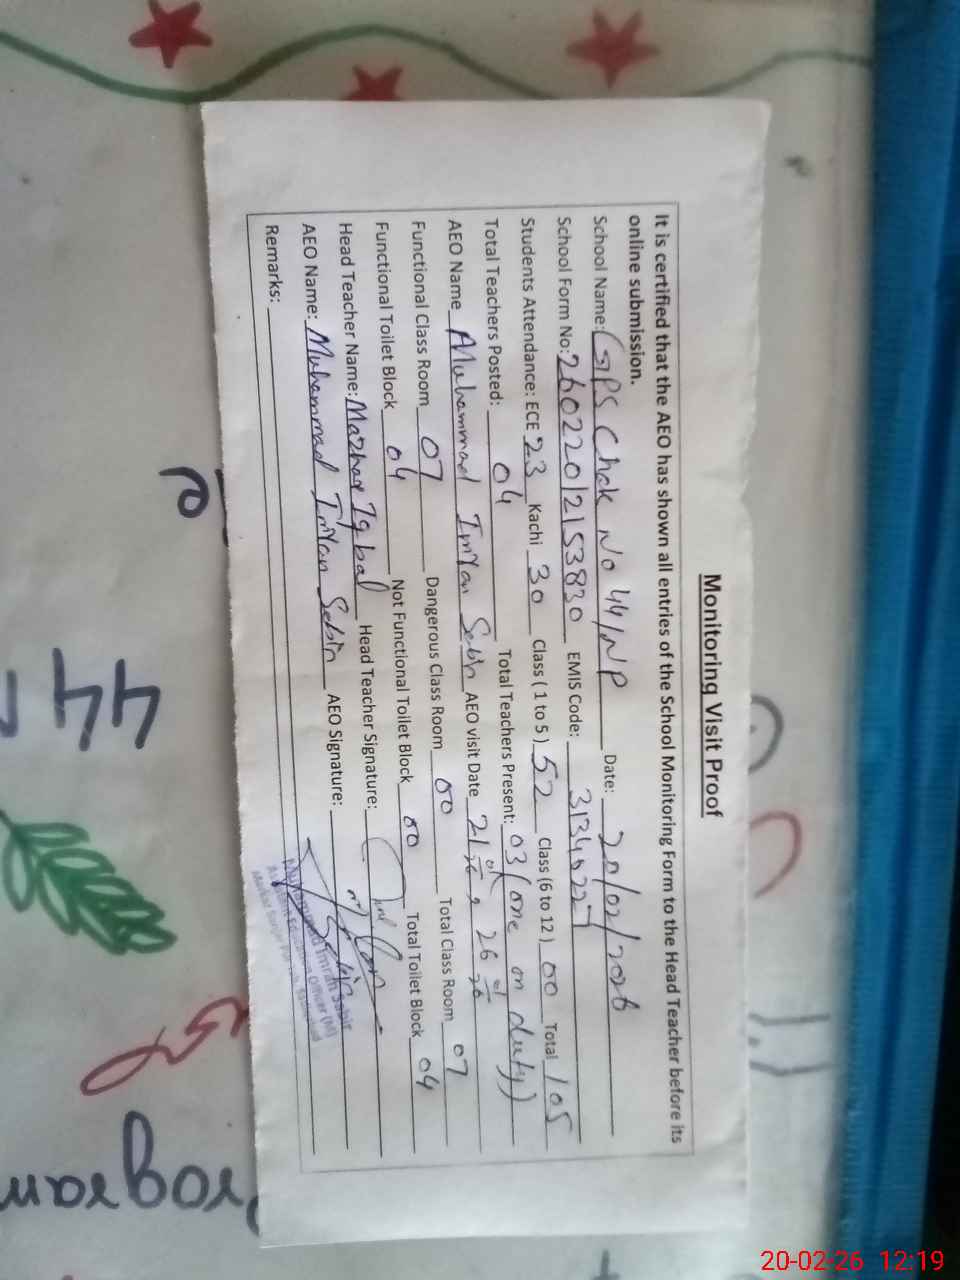 Monitoring Visit Proof
It is certified that the AEO has shown all entries of the School Monitoring Form to the Head Teacher before its
online submission.
School Name: GPS Chak No 44/NP Date: 20/02/2026
School Form No: 26022012153830 EMIS Code: 31340227
Students Attendance: ECE 23 Kachi 30 Class ( 1 to 5 ) 52 Class (6 to 12 ) 00 Total 105
Total Teachers Posted: 04 Total Teachers Present: 03 (one on duty)
AEO Name Muhammad Imran Sabir AEO visit Date 21 26
Functional Class Room 07 Dangerous Class Room 00 Total Class Room 07
Functional Toilet Block 04 Not Functional Toilet Block 00 Total Toilet Block 04
Head Teacher Name: Mazhar Iqbal Head Teacher Signature:
AEO Name: Muhammad Imran Sabir AEO Signature:
Muhammad Imran Sabir
Assistant Education Officer (M)
Remarks:
44
Program
20-02-26 12:19